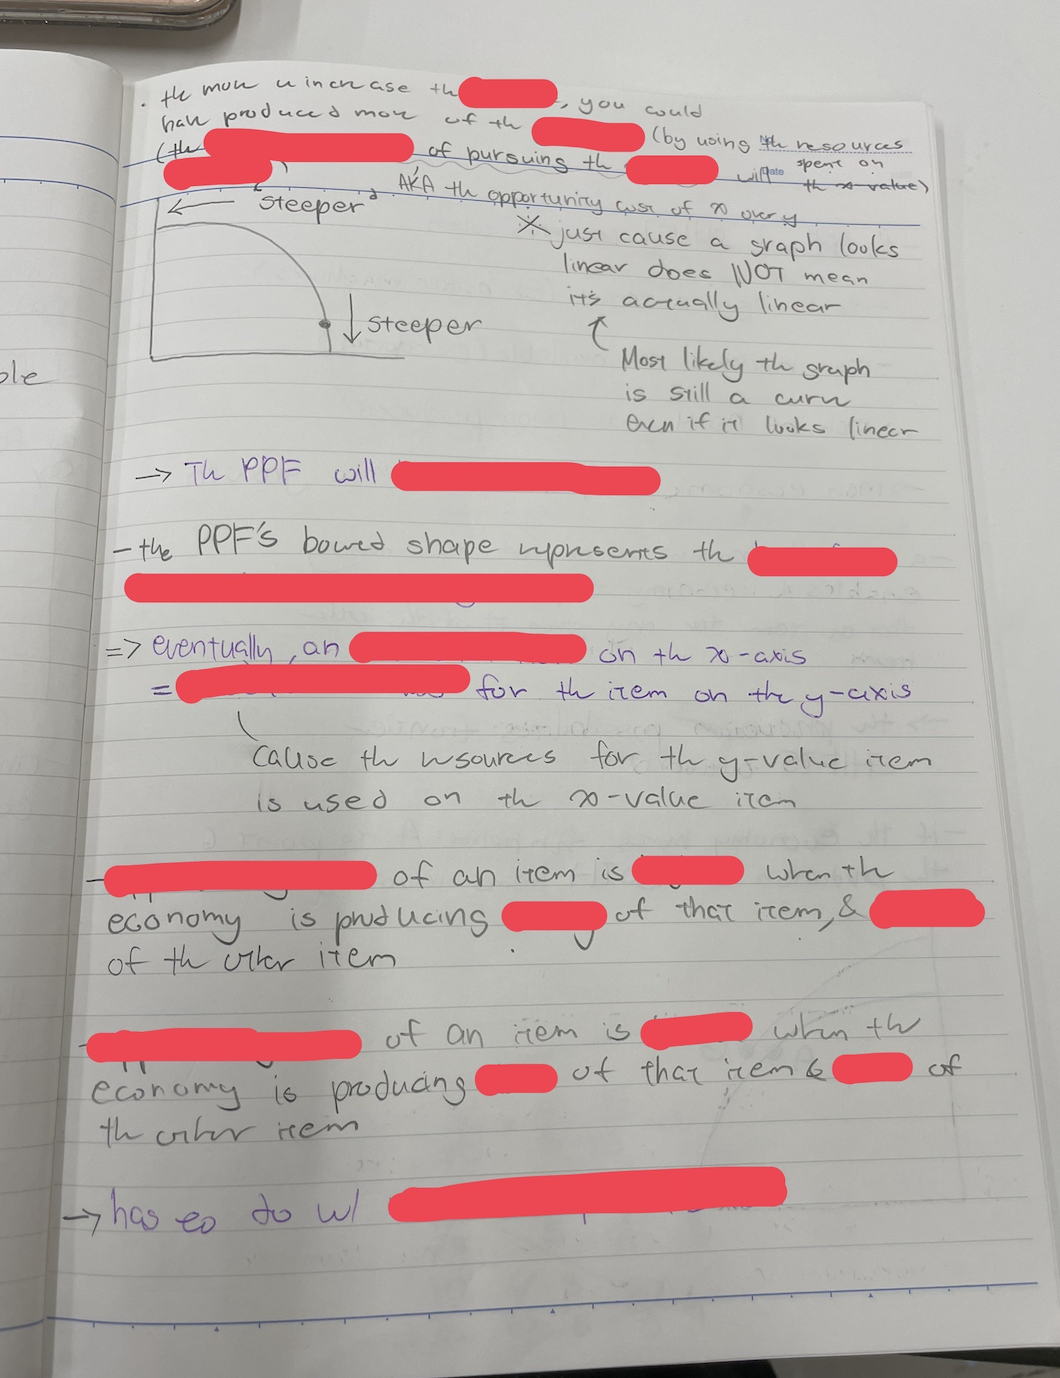 . the more u increase the , you could
have produced more of the (by using the resources
spent on
(the of pursuing the will the x-value)
AKA the opportunity cost of x over y
← steeper
※ just cause a graph looks
linear does NOT mean
it's actually linear
↓ steeper
Most likely the graph
is still a curve
even if it looks linear
ole
→ The PPF will
- the PPF's bowed shape represents the
=> eventually, an on the x-axis
= for the item on the y-axis
cause the resources for the y-value item
is used on the x-value item
- of an item is when the
economy is producing of that item, &
of the other item
- of an item is when the
economy is producing of that item & of
the other item
→ has to do w/